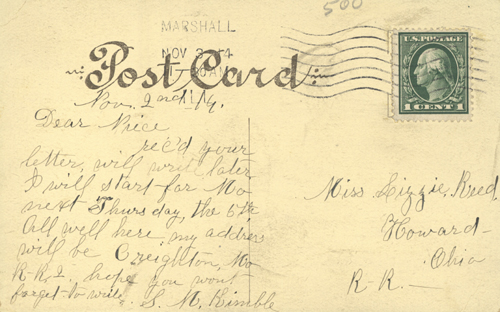 500
MARSHALL
NOV 3
30 AM
U.S. POSTAGE
1 CENT 1
Post Card
Nov. 2nd 14.
Dear Niece
rec'd your
letter, will write later
I will start for Mo
next Thursday, the 5th
All well here, my address
will be Creighton, Mo
R-R. 2. hope you wont
forget to write. S. M. Kimble
Miss Lizzie Reed
Howard
Ohio
R-R. —